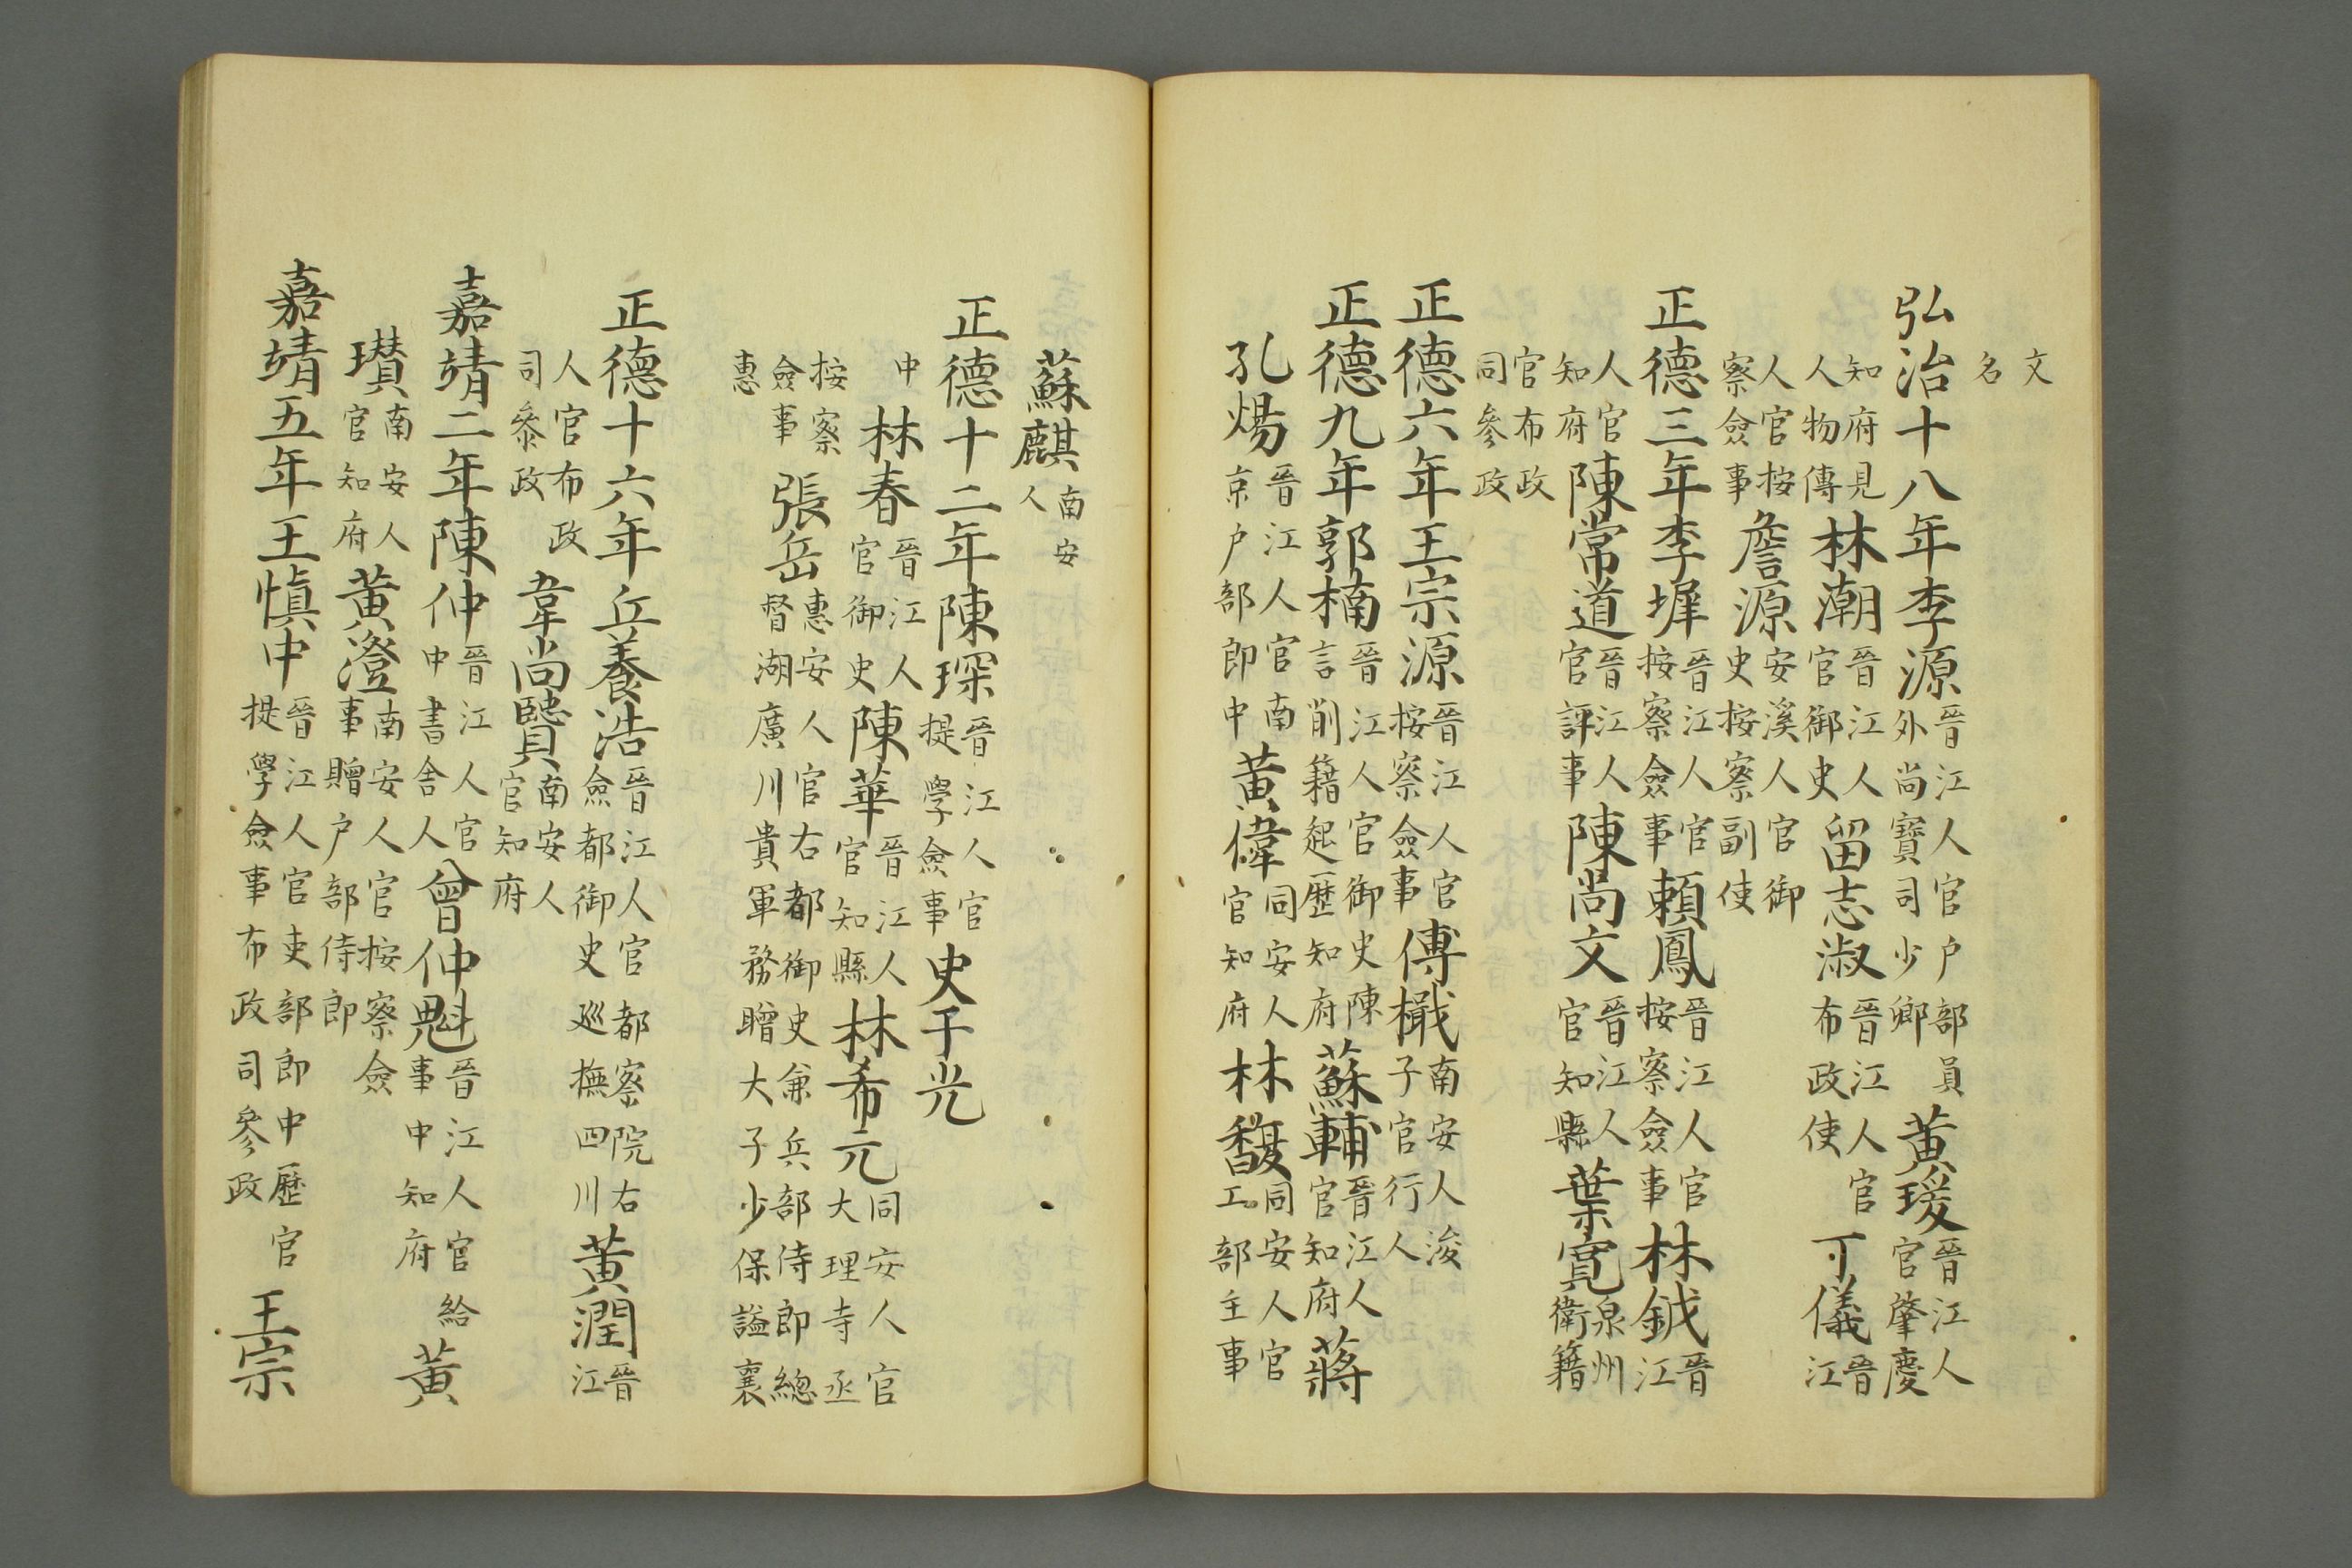 文名
弘治十八年李源晉江人官户部員外尚寶司少卿黄瑗晉江人官肇慶
知府見人物傳林潮晉江人官御史留志淑晉江人官布政使丁儀晉江
人官按察僉事詹源安溪人官御史按察副使
正德三年李墀晉江人官按察僉事賴鳳晉江人官按察僉事林鉞晉江
人官知府陳常道晉江人官評事陳尚文晉江人官知縣葉寬泉州衛籍
官布政司參政
正德六年王宗源晉江人官按察僉事傅檝南安人浚子官行人
正德九年郭楠晉江人官御史陳言削籍起歷知府蘇輔晉江人官知府蔣
孔煬晉江人官南京户部郎中黄偉同安人官知府林馥同安人官工部主事
蘇麒南安人
正德十二年陳琛晉江人官提學僉事史于光
中林春晉江人官御史陳華晉江人官知縣林希元同安人官大理寺丞
按察僉事張岳惠安人官右都御史兼兵部侍郎總督湖廣川貴軍務贈太子少保謚襄
惠
正德十六年丘養浩晉江人官都察院右僉都御史巡撫四川黄潤晉江
人官布政司叅政韋尚賢南安人官知府
嘉靖二年陳仲晉江人官中書舍人曾仲魁晉江人官給事中知府黄
瓚南安人官知府黄澄南安人官按察僉事贈户部侍郎
嘉靖五年王慎中晉江人官吏部郎中歷官提學僉事布政司參政王宗